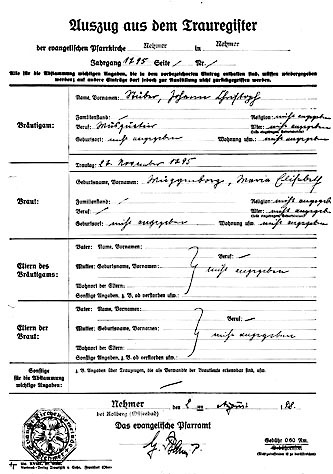 Auszug aus dem Trauregister
der evangelischen Pfarrkirche Nehmer in Nehmer
Jahrgang 1795 Seite / Nr. /
Alle für die Abstammung wichtigen Angaben, die in dem vorbezeichneten Eintrag enthalten sind, müssen wiedergegeben
werden; auf andere Einträge darf jedoch zur Ausfüllung nicht zurückgegriffen werden.
Bräutigam:
Name, Vornamen: Stüber, Johann Christoph
Familienstand: / Religion: nicht angegeben
Beruf: Musquetier nicht angegeben
Geburtsort: nicht angegeben Wohnung usw.: nicht angegeben
Trautag: 27. November 1795
Braut:
Geburtsname, Vornamen: Müggenborg, Maria Elisabeth
Familienstand: / Religion: nicht angegeben
Beruf: / nicht angegeben
Geburtsort: nicht angegeben Wohnung usw.: nicht angegeben
Eltern des
Bräutigams:
Vater: Name, Vornamen:
Beruf:
Mutter: Geburtsname, Vornamen: nicht angegeben
Wohnort der Eltern:
Sonstige Angaben, z. B. ob verstorben usw.:
Eltern der
Braut:
Vater: Name, Vornamen:
Beruf:
Mutter: Geburtsname, Vornamen: nicht angegeben
Wohnort der Eltern:
Sonstige Angaben, z. B. ob verstorben usw.:
Sonstige
für die Abstammung
wichtige Angaben:
z. B. Angaben über Trauzeugen, die als Verwandte der Brautleute erkennbar sind, usw.
Nehmer den 2. 38.
bei Kolberg
Das evangelische Pfarramt
Gebühr 0.60 Rm.